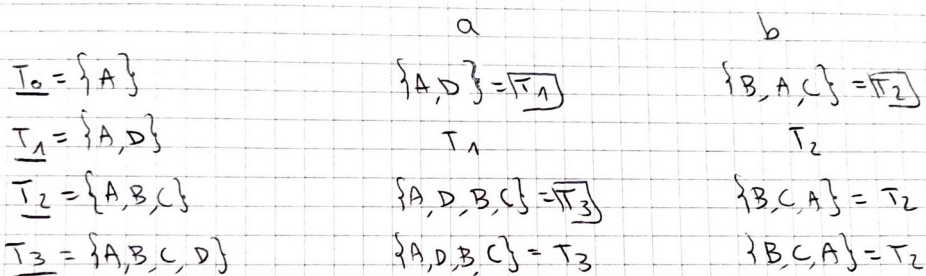 a b
T₀ = {A} {A,D} = T₁ {B,A,C} = T₂
T₁ = {A,D} T₁ T₂
T₂ = {A,B,C} {A,D,B,C} = T₃ {B,C,A} = T₂
T₃ = {A,B,C,D} {A,D,B,C} = T₃ {B,C,A} = T₂